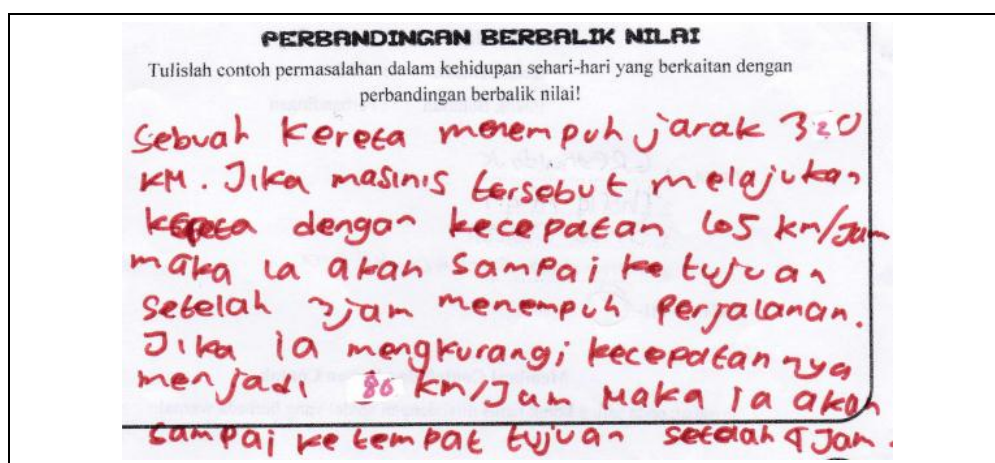 PERBANDINGAN BERBALIK NILAI
Tulislah contoh permasalahan dalam kehidupan sehari-hari yang berkaitan dengan
perbandingan berbalik nilai!
Sebuah Kereta menempuh jarak 320
KM. Jika masinis tersebut melajukan
kereta dengan kecepatan 105 km/Jam
maka ia akan sampai ke tujuan
setelah 3jam menempuh Perjalanan.
Jika ia mengkurangi kecepatannya
menjadi 80 km/Jam Maka ia akan
sampai ke tempat tujuan setelah 4 Jam.